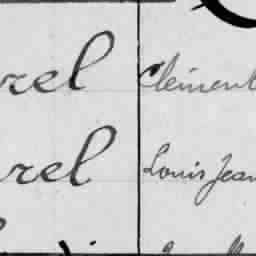 rel Clément
rel Louis Jean